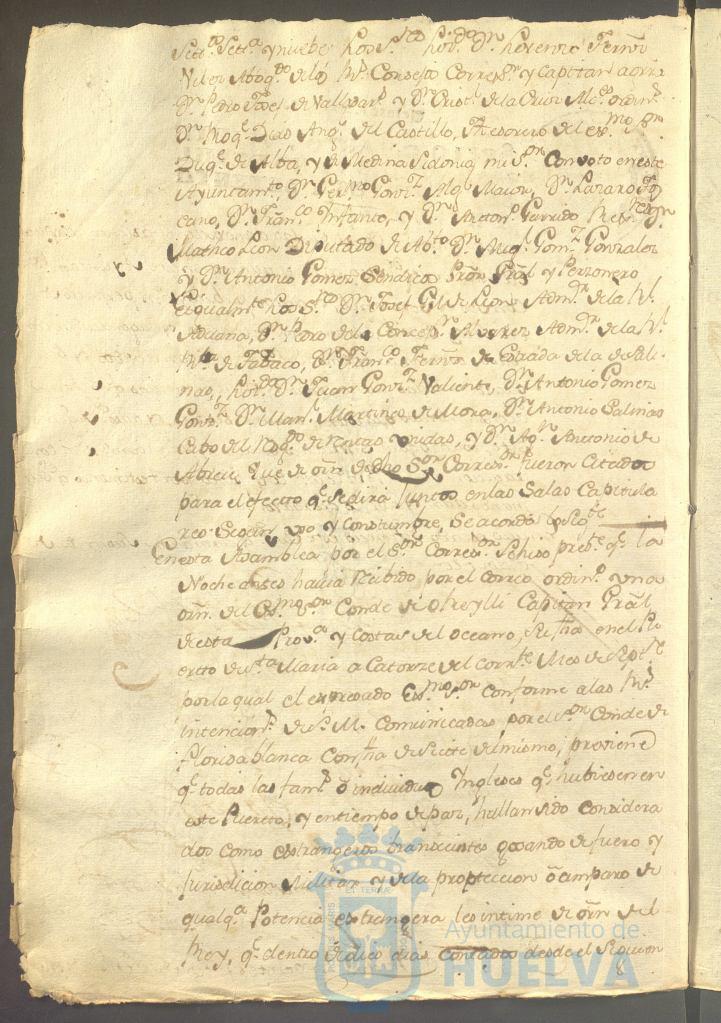 Set.ª Set.ª y nuebe Los S.res Liz.do D.n Lorenzo Fern.z
Abog.do de los R.s Consejos Correx.r y Capitan a Gra
D.n Pedro Josef de Valladar.s y D.n Crist.l de la Cruz Alc.s ordin.s
D.n Roq.e Dias Ang.l del Castillo, Thesorero del ex.mo S.or
Duq.e de Alba, y de Medina Sidonia mi S.or Con voto en este
Ayuntam.to, D.n Ger.mo Gonz.z Alg.l Maior, D.n Lazaro
cano, D.n Fran.co Infante, y D.n Anton.o Garrido Rex.s D.n
Matheo Leon Diputado de Ab.to D.n Mig.l Gom.z Gonzalez
y D.n Antonio Gomez Sendicos Pror. Gral y Perzonero
e igualm.te Los S.res D.n Josef Gil de Leon Adm.or de la R.l
Aduana, D.n Pedro de la Concep.n Alvarez Adm.or de la R.l
R.ta de Tabaco, D.n Fran.co Fern.z de Estrada de la de Sali
nas, Liz.do D.n Juan Gonz.z Valiente, D.n Antonio Gomez
Gonz.z D.n Man.l Martinez de Mora, D.n Antonio Salinas
Cabo del Resg.do de Rentas unidas, y D.n Ag.n Antonio de
Abreu, que de orn. de dho S.or Correx.or fueron Citados
para el efecto q.e se dirá Juntos en las Salas Capitula
res Segun uso y Constumbre, se acordó lo Sig.te
En esta Asamblea por el S.or Correx.or Se hiso pres.te q.e la
Noche antes havia recibido por el Correo ordin.o una
orn. del Ex.mo S.or Conde de Oreylli Capitan Gral
de esta Prov.a y Costas del oceano, su fha en el Pu
erto de S.ta Maria a Catorze del corr.te Mes de Sep.re
por la qual el expresado Ex.mo S.or conforme a las R.s
intencion.s de S. M. Comunicadas por el S.or Conde de
Florida blanca Con fha de Siete del mismo, previene
q.e todas las fam.s ó individuos Ingleses q.e hubiesen en
este Puerto, y en tiempo de paz, hallan sido considera
dos como extrangeros transeuntes gosando de fuero y
Jurisdicion Militar y de la proteccion ó amparo de
qualq.a Potencia extrangera les intime de orn. del
Rey, q.e dentro de dies dias Contados desde el
Ayuntamiento de
HUELVA